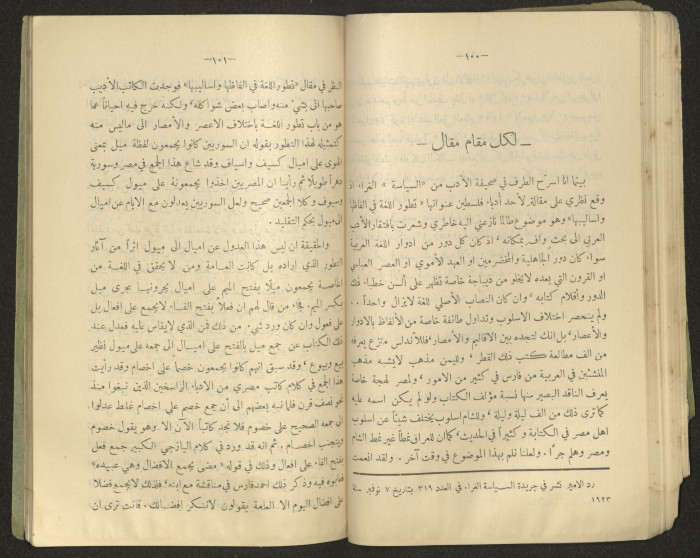 —١٠٠—
— لكل مقام مقال —
بينما انا اسرّح الطرف في صحيفة الأدب من «السياسة» الغراء اذ
وقع نظري على مقالة لأحد أدباء فلسطين عنوانها «تطور اللغة في الفاظها
واساليبها» وهو موضوع طالما نازعني اليه خاطري وشعرت بافتقار الأدب
العربي الى بحث واف بمكانه، اذ كان لكل دور من ادوار اللغة العربية
سواء كان دور الجاهلية والمخضرمين او العهد الأموي او العصر العباسي
او القرون التي بعده لا يخلو من ديباجة خاصة تظهر على ألسن خطباء ذلك
الدور وأقلام كتابه، وان كان النصاب الأصلي للغة لا يزال واحداً..
ولم ينحصر اختلاف الاسلوب وتداول طائفة خاصة من الألفاظ بالادوار
والأعصار، بل انك لتجده بين الاقاليم والأمصار، فللأندلس منزع يعرفه
من الف مطالعة كتب ذلك القطر، ولليمن مذهب لا يشبه مذهب
المنشئين في العربية من فارس في كثير من الامور، ولمصر لهجة خاصة
يعرف الناقد البصير منها نسبة مؤلف الكتاب ولو لم يكن اسمه عليه
كما ترى ذلك من الف ليلة وليلة، وللشام اسلوب يختلف شيئاً عن اسلوب
اهل مصر في الكتابة وكثيراً في الحديث، كما ان للعراق نمطاً غير نمط الشام
ومصر وهلم جراً. ولعلنا نلم بهذا الموضوع في وقت آخر. ولقد انعمت
رد الامير نشر في جريدة السياسة الغراء في العدد ٣١٩ بتاريخ ٧ نوفمبر سنة
١٩٢٣
—١٠١—
النظر في مقال «تطور اللغة في الفاظها واساليبها» فوجدت الكاتب الأديب
صاحبها اتى بشيء منه واصاب بعض شواكله، ولكنه خرج فيه احياناً عما
هو من باب تطور اللغة باختلاف الاعصر والأمصار الى ما ليس منه
كتمثيله لهذا التطور بقوله ان السوريين كانوا يجمعون لفظة ميل بمعنى
الهوى على اميال كسيف واسياف وقد شاع هذا الجمع في مصر وسورية
دهراً طويلاً ثم رأينا ان المصريين اخذوا يجمعونه على ميول كسيف
وسيوف وكلا الجمعين صحيح ولعل السوريين يعدلون مع الايام عن اميال
الى ميول بحكم التقليد.
والحقيقة ان ليس هذا العدول عن اميال الى ميول اثراً من آثار
التطور الذي اراده بل كانت العامة ومن لا يحقق في اللغة من
الخاصة يجمعون ميلاً بفتح الميم على اميال يجرونها مجرى ميل
بكسر الميم، فجاء من قال لهم ان فعلاً بفتح الفاء لا يجمع على افعال بل
على فعول وان كان ورد شيء من ذلك فمن الذي لا يقاس عليه فعدل عند
تلك الكتاب عن جمع ميل بالفتح على اميال الى جمعه على ميول نظير
بيع وبيوع، وقد سبق انهم كانوا يجمعون خصماً على اخصام وقد رأيت
هذا الجمع في كلام كاتب مصري من الادباء الراسخين الذين نبغوا منذ
نحو نصف قرن فلما نبه بعضهم الى أن جمع خصم على اخصام غلط عدلوا
الى جمعه الصحيح على خصوم فلا تجد كاتباً الآن الا وهو يقول خصوم
ويتجنب اخصام، ثم انه قد ورد في كلام اليازجي الكبير جمع فعل
بفتح الفاء على افعال وذلك في قوله «مضى يجمع الافضال وهي عبيده»
فعابوه فيه وذكر ذلك احمد فارس في مناقشة مع ابنه، فلذلك لا يجمع فضلاً
على افضال اليوم الا العامة يقولون لا ننكر افضالك. فانت ترى ان